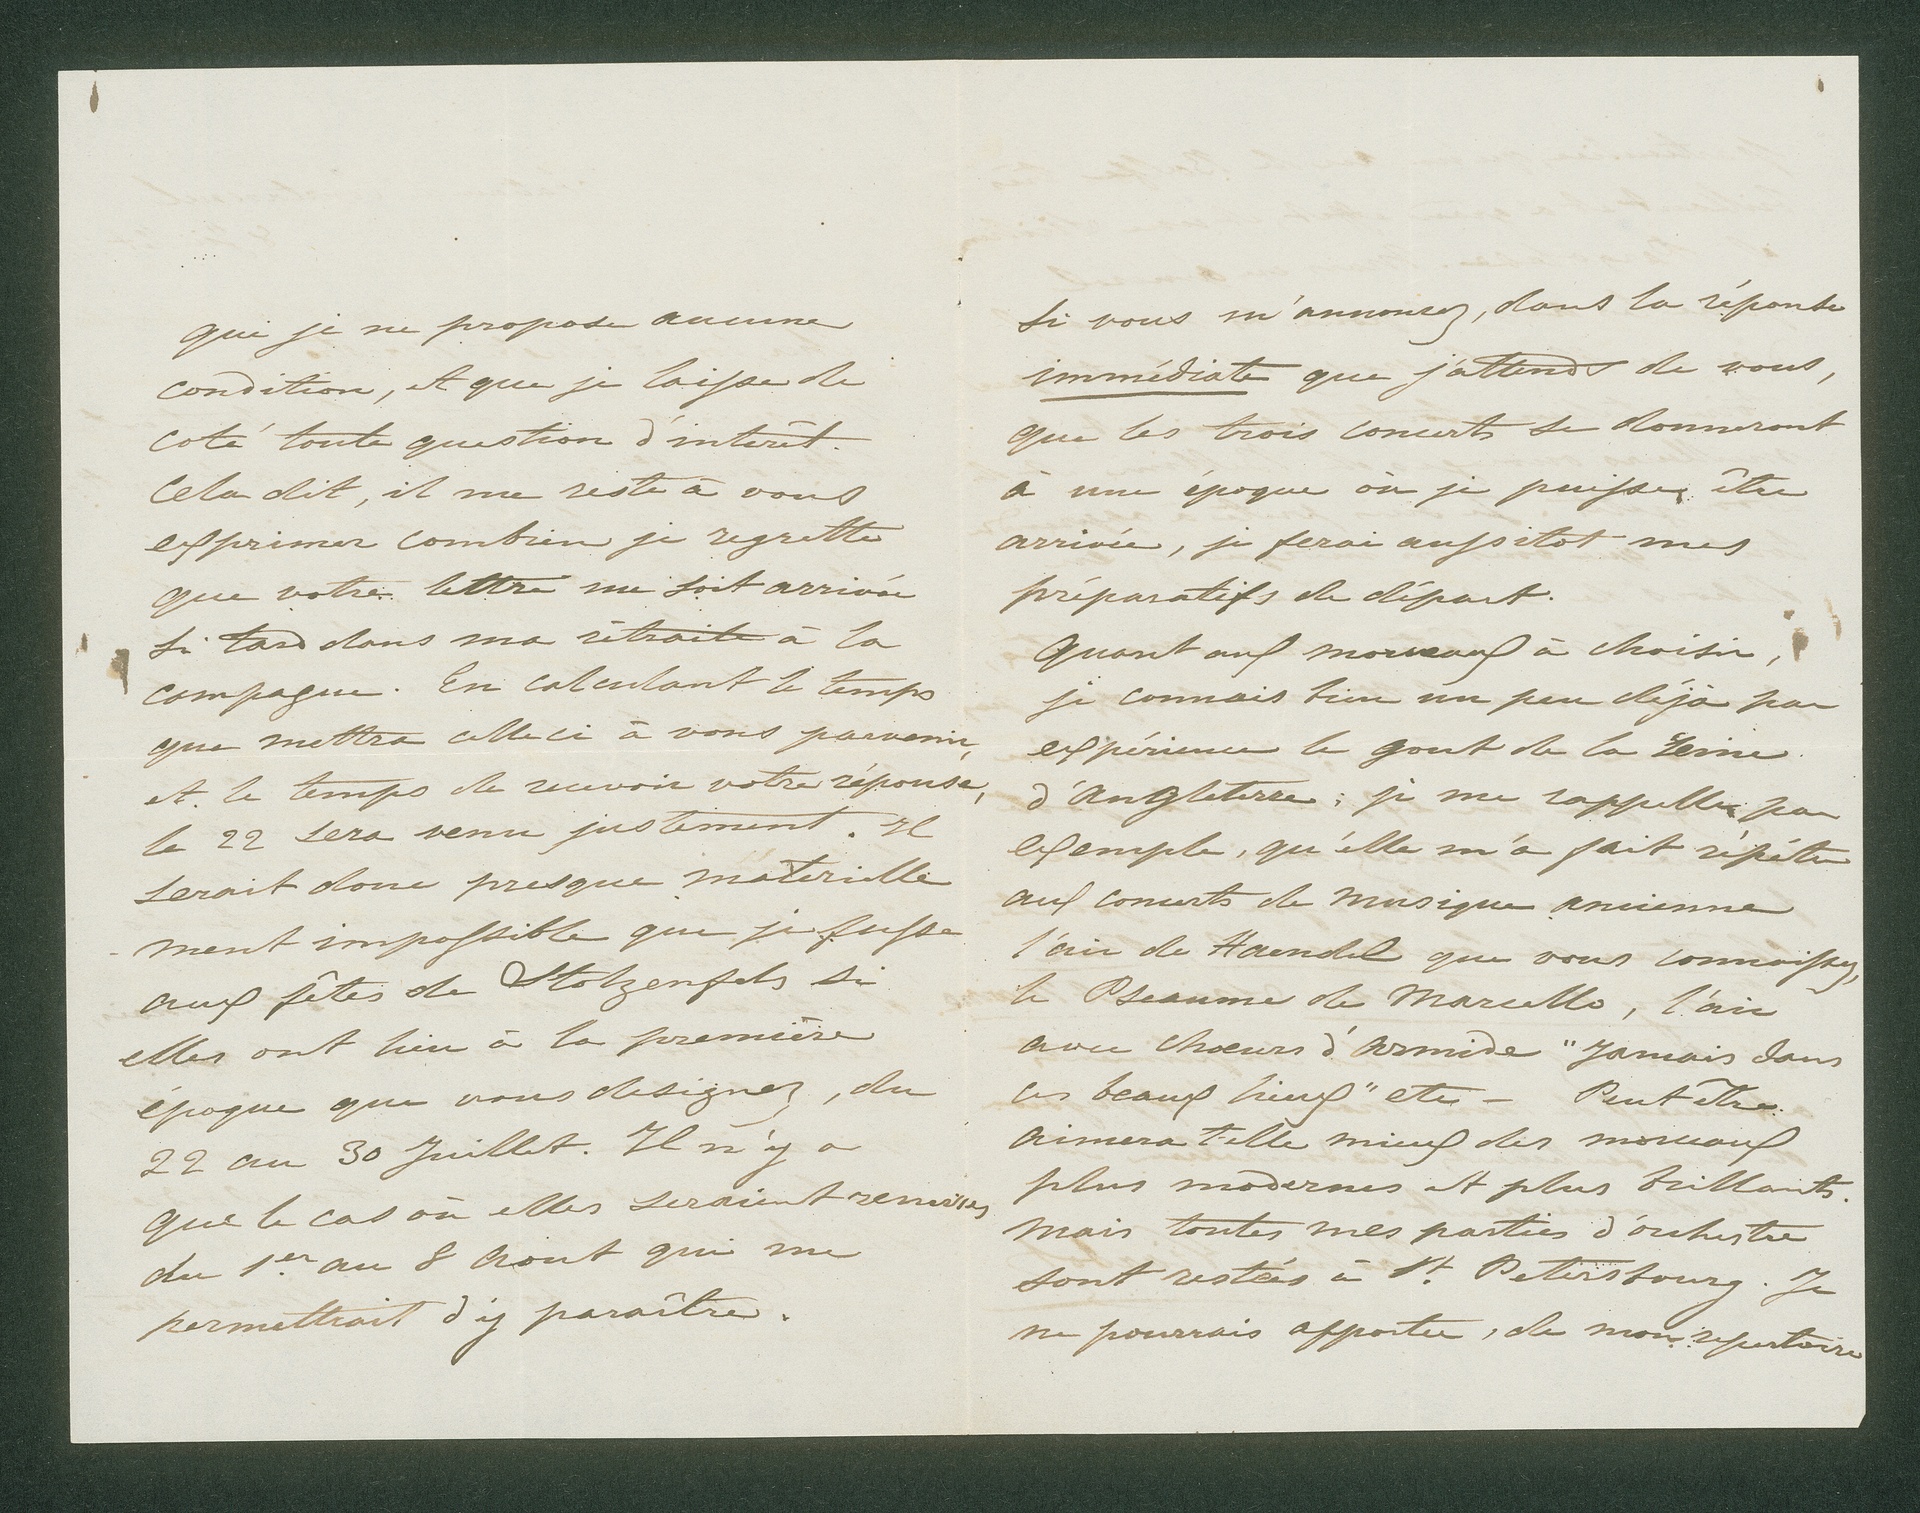 que je ne propose aucune
condition, et que je laisse de
coté toute question d'intérêt.
Cela dit, il me reste à vous
exprimer combien je regrette
que votre lettre me soit arrivée
si tard dans ma retraite à la
campagne. En calculant le temps
que mettra celle ci à vous parvenir,
et le temps de recevoir votre réponse,
le 22 sera venu justement. Il
serait donc presque matérielle
ment impossible que je fusse
aux fêtes de Stolzenfels si
elles ont lieu à la première
époque que vous designez, du
22 au 30 Juillet. Il n'y a
que le cas où elles seraient remises
du 1er au 8 Aout qui me
permettrait d'y paraître.
Si vous m'annoncez, dans la réponse
immédiate que j'attends de vous,
que les trois concerts se donneront
à une époque où je puisse être
arrivée, je ferai aussitot mes
préparatifs de départ.
Quant aux morceaux à choisir,
je connais bien un peu déjà par
expérience le gout de la Reine
d'Angleterre; je me rappelle par
exemple, qu'elle m'a fait répéter
aux concerts de Musique ancienne
l'air de Haendel que vous connaissez,
le Pseaume de Marcello, l'air
avec choeurs d'Armide "Jamais dans
ces beaux lieux" etc – Peut être
aimera t-elle mieux des morceaux
plus modernes et plus brillants.
Mais toutes mes parties d'orchestre
sont restées à St. Petersbourg. Je
ne pourrais apporter, de mon repertoire